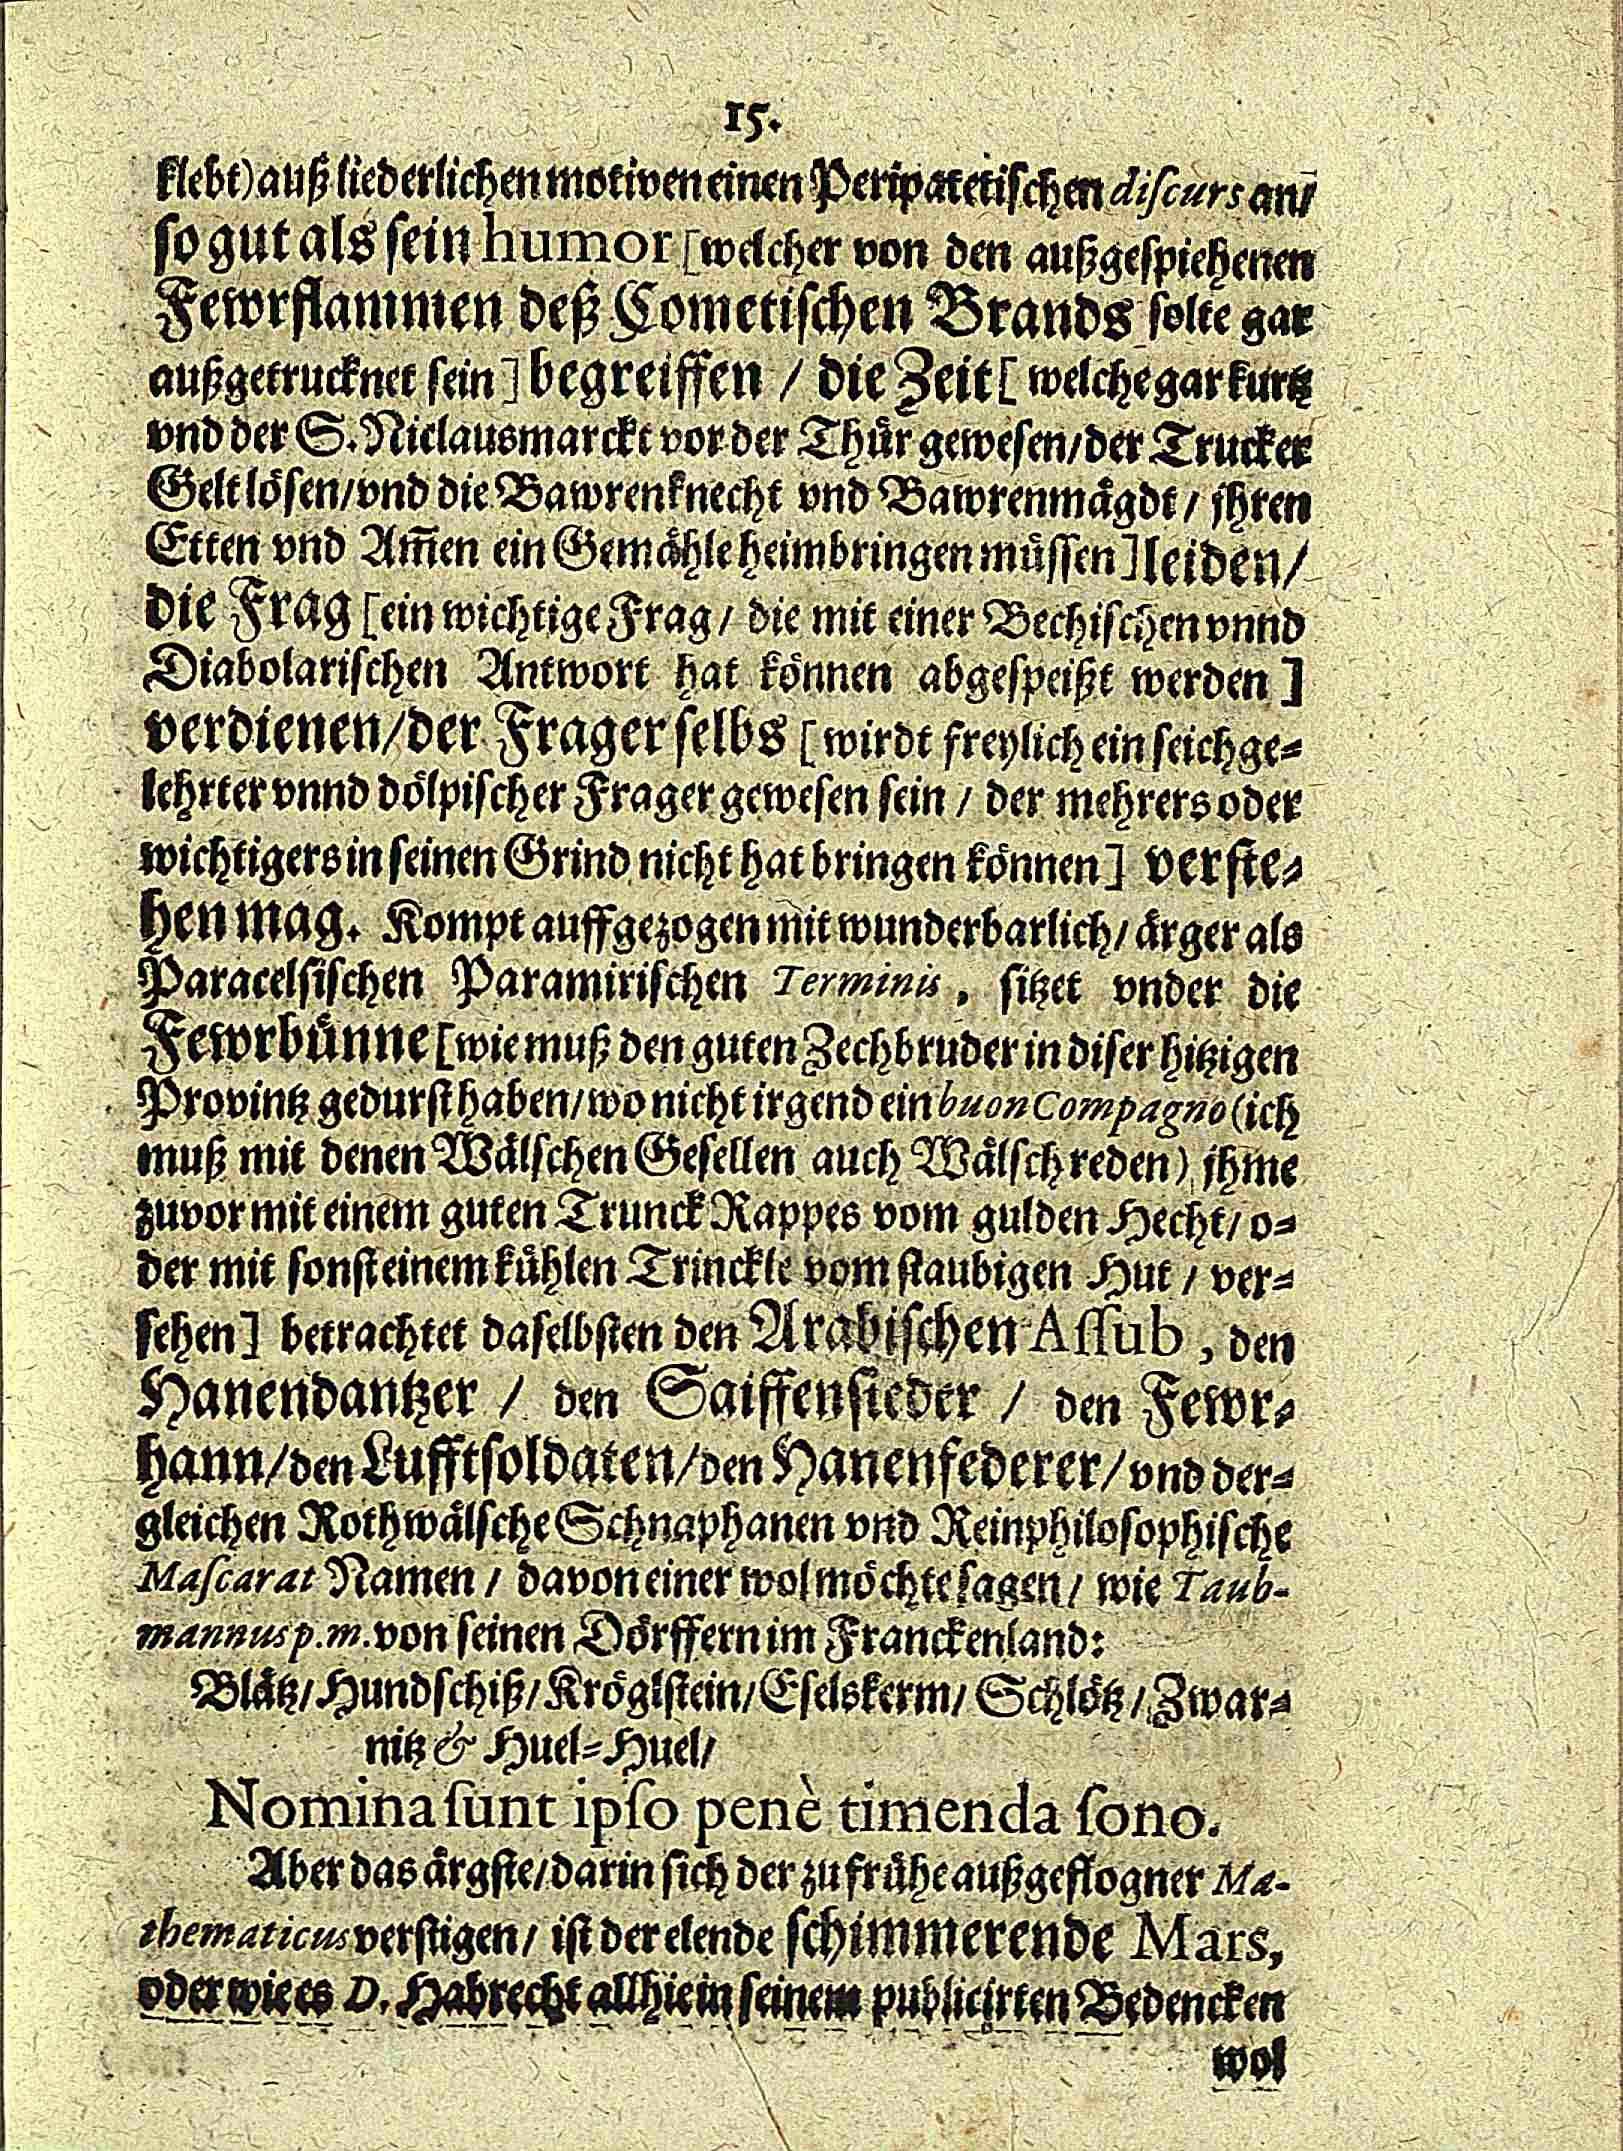 15.
klebt) auß liederlichen motiven einen Peripatetischen discurs an/
so gut als sein humor [welcher von den außgespiehenen
Fewrflammen deß Cometischen Brands solte gar
außgetrucknet sein] begreiffen / die Zeit [ welche gar kurtz
vnd der S. Niclausmarckt vor der Thür gewesen/ der Trucker
Gelt lösen/ vnd die Bawrenknecht vnd Bawrenmägdt / jhren
Etten vnd Am̄en ein Gemähle heimbringen müssen] leiden/
die Frag [ein wichtige Frag / die mit einer Bechischen vnnd
Diabolarischen Antwort hat können abgespeißt werden ]
verdienen/ der Frager selbs [ wirdt freylich ein seichge-
lehrter vnnd dölpischer Frager gewesen sein / der mehrers oder
wichtigers in seinen Grind nicht hat bringen können] verste-
hen mag. Kompt auffgezogen mit wunderbarlich/ ärger als
Paracelsischen Paramirischen Terminis, sitzet vnder die
Fewrbünne [wie muß den guten Zechbruder in diser hitzigen
Provintz gedurst haben/ wo nicht irgend ein buon Compagno (ich
muß mit denen Wälschen Gesellen auch Wälsch reden) jhme
zuvor mit einem guten Trunck Rappes vom gulden Hecht/ o-
der mit sonst einem kühlen Trinckle vom staubigen Hut / ver-
sehen] betrachtet daselbsten den Arabischen Assub, den
Hanendantzer / den Saiffensieder / den Fewr-
hann/ den Lufftsoldaten/ den Hanenfederer/ vnd der-
gleichen Rothwälsche Schnaphanen vnd Reinphilosophische
Mascarat Namen / davon einer wol möchte sagen/ wie Taub-
mannus p.m. von seinen Dörffern im Franckenland:
Blätz/ Hundschiß/ Kröglstein/ Eselskerm/ Schlötz/ Zwar-
nitz & Huel-Huel/
Nomina sunt ipso penè timenda sono.
Aber das ärgste/ darin sich der zu frühe außgeflogner Ma-
thematicus verstigen/ ist der elende schimmerende Mars,
oder wie es D. Habrecht allhie in seinem publicirten Bedencken
wol